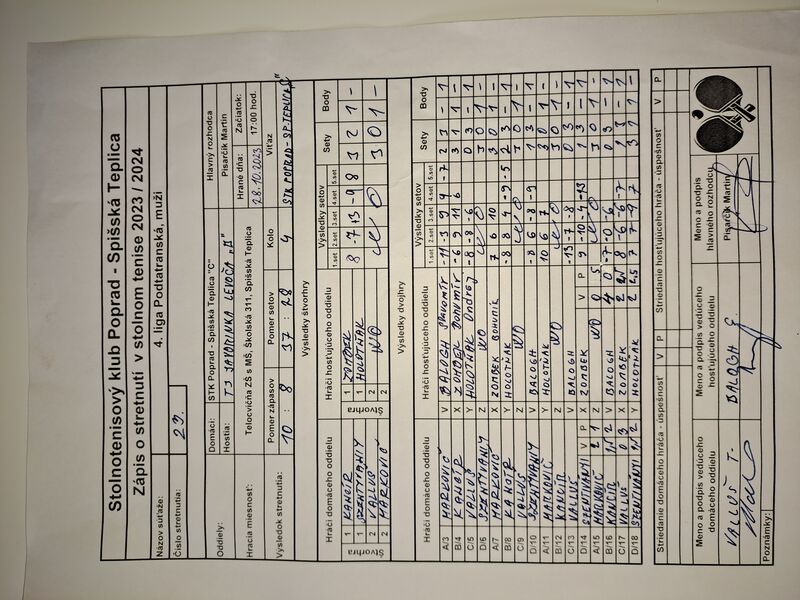 Stolnotenisový klub Poprad - Spišská Teplica
Zápis o stretnutí v stolnom tenise 2023 / 2024
Názov súťaže: 4. liga Podtatranská, muži
Číslo stretnutia: 23.
Oddiely: Domáci: STK Poprad - Spišská Teplica "C" Hlavný rozhodca
Hostia: TJ JAVORINKA LEVOČA "II" Pisarčík Martin
Hracia miesnosť: Telocvičňa ZŠ s MŠ, Školská 311, Spišská Teplica Hrané dňa: Začiatok:
28.10.2023 17:00 hod.
Výsledok stretnutia: Pomer zápasov Pomer setov Kolo Víťaz
10 : 8 37 : 28 4 STK POPRAD - SP. TEPLICA "C"
Výsledky štvorhry
Hráči domáceho oddielu Hráči hosťujúceho oddielu Výsledky setov Sety Body
1.set 2.set 3.set 4.set 5.set
Štvorhra 1 KANČÍR Štvorhra 1 ZOMBEK 8 -7 13 -9 8 3 2 1 -
1 SZENTYVÁNY 1 HOLOTŇÁK
2 VALLUŠ 2 WO 3 0 1 -
2 MARKOVIČ 2
Výsledky dvojhry
Hráči domáceho oddielu Hráči hosťujúceho oddielu Výsledky setov Sety Body
1.set 2.set 3.set 4.set 5.set
A/3 MARKOVIČ V BALOGH SLAVOMÍR -11 -3 9 9 -7 2 3 - 1
B/4 KANČÍR X ZOMBEK BOHUMÍR -6 9 11 6 3 1 1 -
C/5 VALLUŠ Y HOLOTŇÁK Ondrej -8 -8 -6 0 3 - 1
D/6 SZENTYVÁNY Z WO 3 0 1 -
A/7 MARKOVIČ X ZOMBEK 7 6 10 3 0 1 -
B/8 KANČÍR Y HOLOTŇÁK -8 8 4 -9 -5 2 3 - 1
C/9 VALLUŠ Z WO 3 0 1 -
D/10 SZENTYVÁNY V BALOGH -8 6 -8 -9 1 3 - 1
A/11 MARKOVIČ Y HOLOTŇÁK 10 6 7 3 0 1 -
B/12 KANČÍR Z WO 3 0 1 -
C/13 VALLUŠ V BALOGH -13 -7 -8 0 3 - 1
D/14 SZENTIVÁNYI V P X ZOMBEK V P 9 -10 -4 -13 1 3 - 1
A/15 MARKOVIČ 2 1 Z WO 0 5 3 0 1 -
B/16 KANČÍR V BALOGH 4 0 -7 -0 -6 0 3 - 1
C/17 VALLUŠ 0 3 X ZOMBEK 8 -6 -6 -7 1 3 - 1
D/18 SZENTIVÁNYI Y HOLOTŇÁK 7 7 -9 7 3 1 1 -
Striedanie domáceho hráča - úspešnosť V P Striedanie hosťujúceho hráča - úspešnosť V P
Meno a podpis vedúceho domáceho oddielu
Meno a podpis vedúceho hosťujúceho oddielu
Meno a podpis hlavného rozhodcu
VALLUŠ T.
BALOGH S.
Pisarčík Martin
Poznámky: